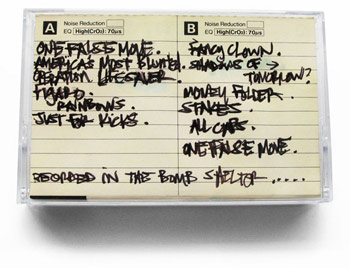 A
Noise Reduction
EQ High(CrO2):70µs
ONE FALSE MOVE.
AMERICAS MOST BLUNTED.
OPERATION LIFESAVER.
FIGARO.
RAINBOWS.
JUST FOR KICKS.
B
Noise Reduction
EQ High(CrO2):70µs
FANCY CLOWN.
SHADOWS OF →
TOMORROW?
MONEY FOLDER.
STAKES.
ALL CAPS.
ONE FALSE MOVE.
RECORDED IN THE BOMB SHELTER.....